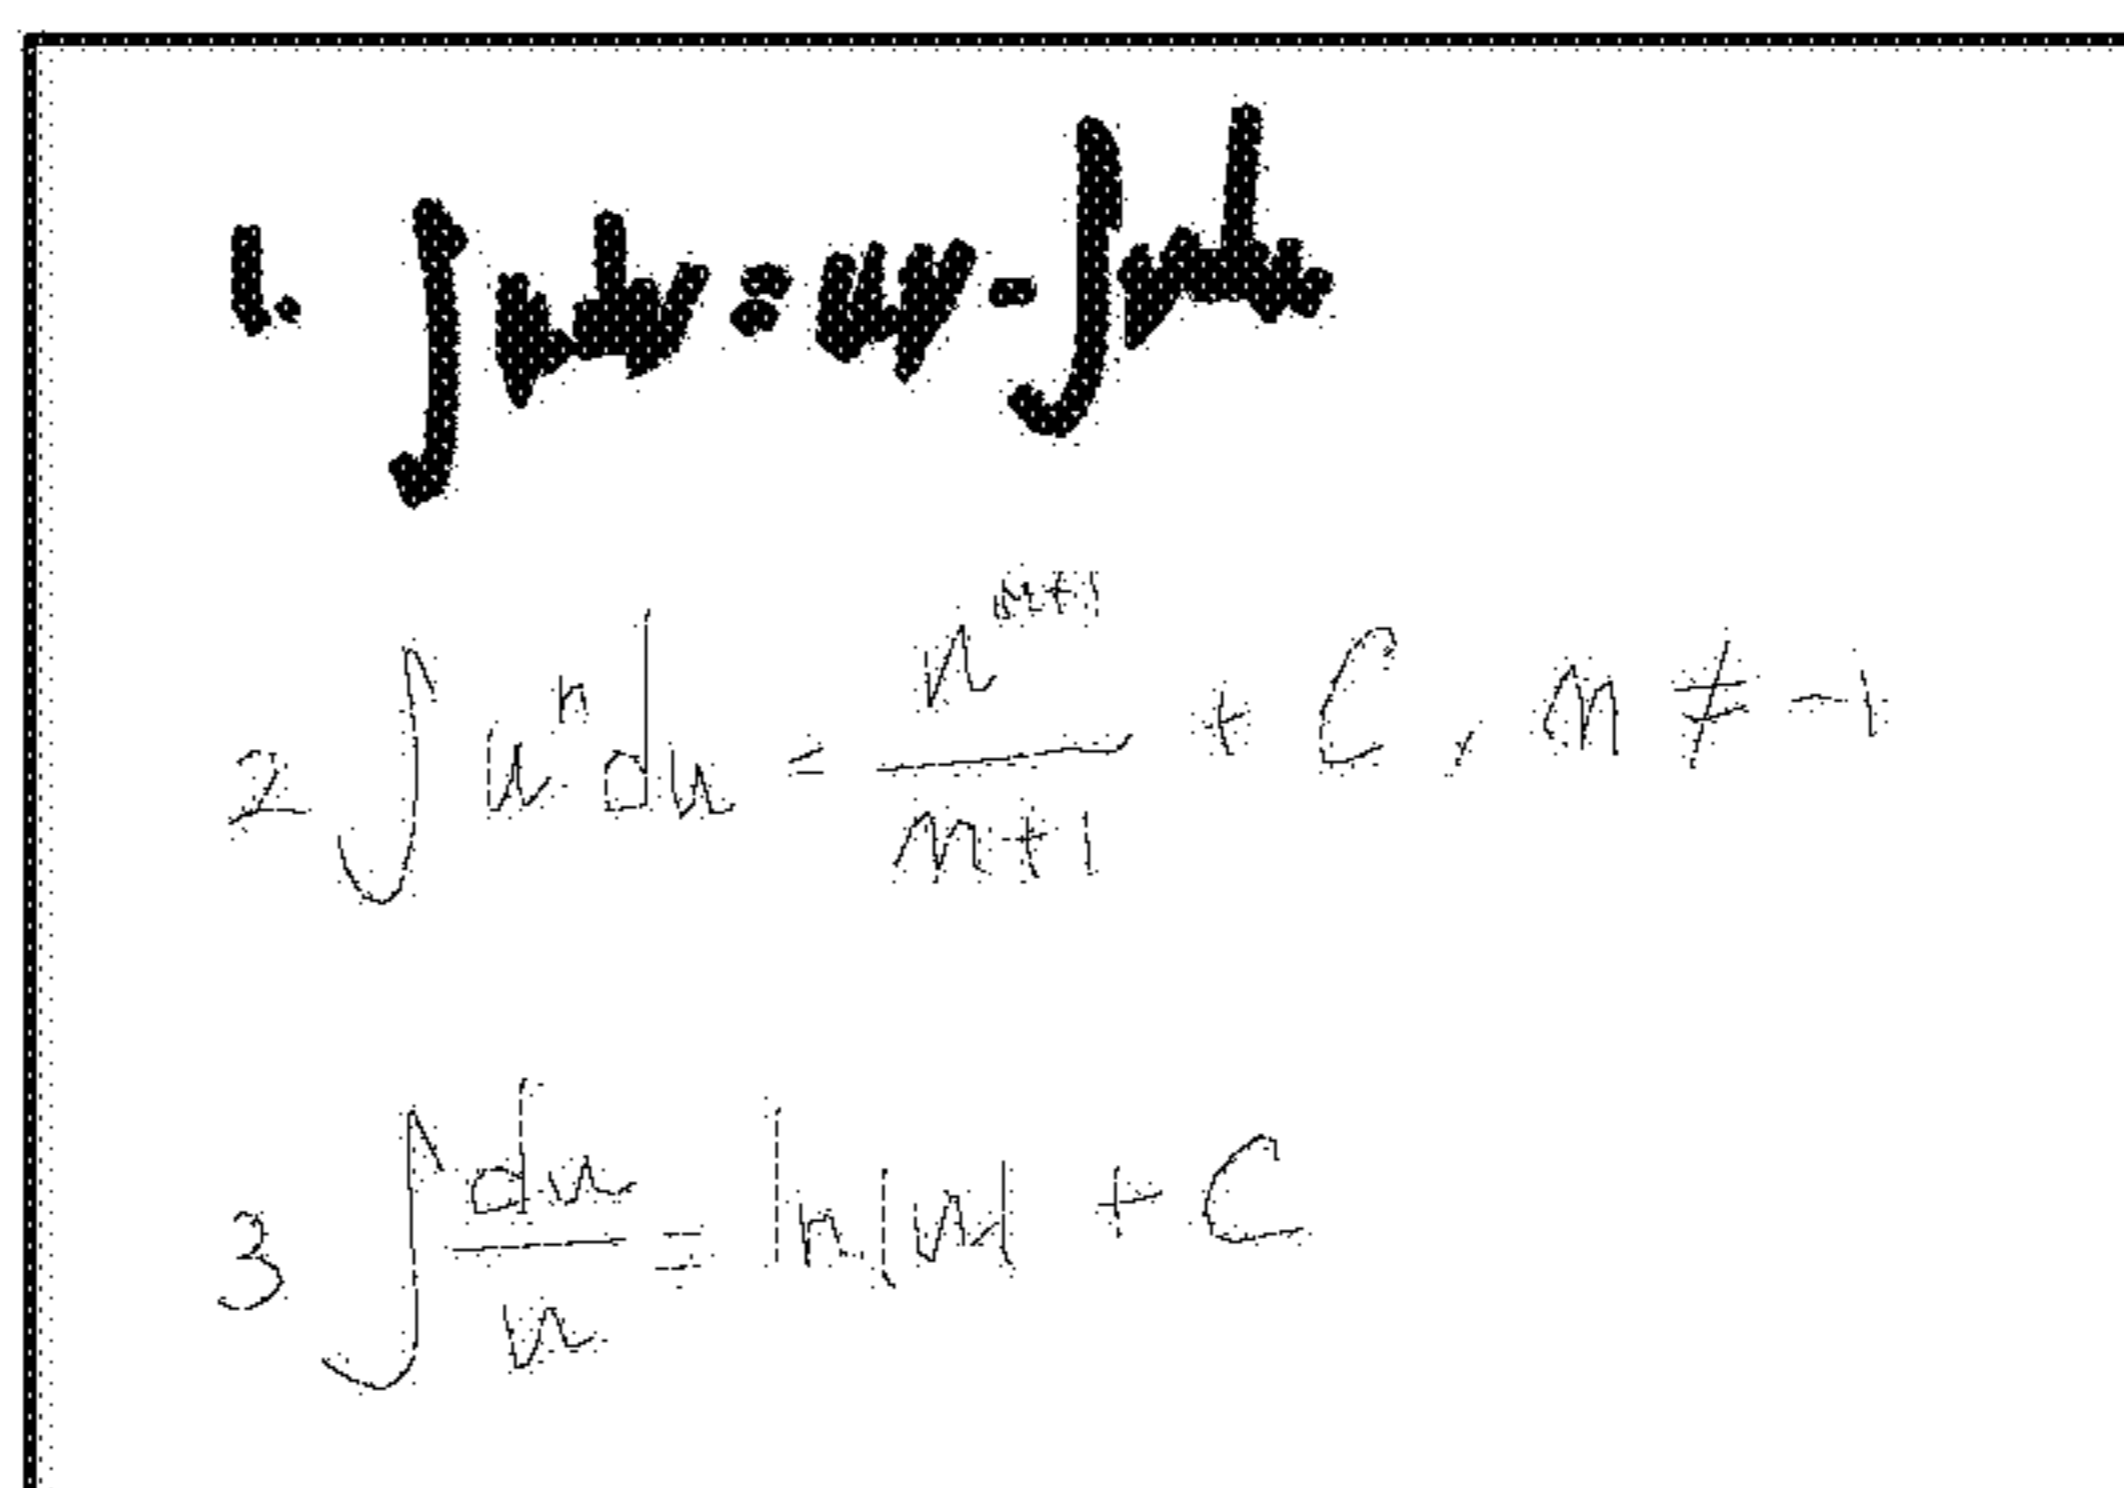 1. ∫ u dv = uv - ∫ v du
2 ∫ uⁿ du = uⁿ⁺¹ / n+1 + C, n ≠ -1
3 ∫ du / u = ln |u| + C